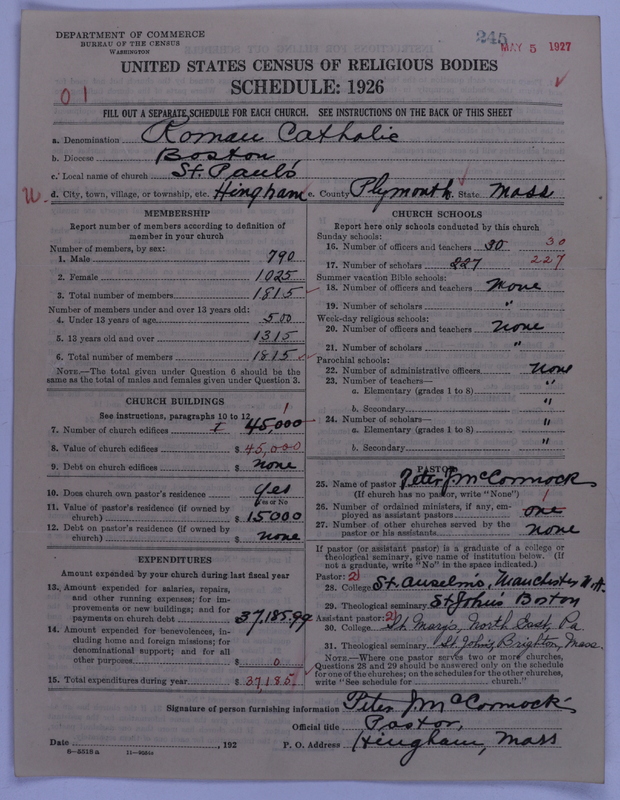 DEPARTMENT OF COMMERCE
BUREAU OF THE CENSUS
WASHINGTON
245
MAY 5 1927
UNITED STATES CENSUS OF RELIGIOUS BODIES
SCHEDULE: 1926
01
FILL OUT A SEPARATE SCHEDULE FOR EACH CHURCH. SEE INSTRUCTIONS ON THE BACK OF THIS SHEET
a. Denomination Roman Catholic
b. Diocese Boston
c. Local name of church St. Paul's
d. City, town, village, or township, etc. Hingham e. County Plymouth f. State Mass
MEMBERSHIP
Report number of members according to definition of
member in your church
Number of members, by sex:
1. Male 790
2. Female 1025
3. Total number of members 1815
Number of members under and over 13 years old:
4. Under 13 years of age 500
5. 13 years old and over 1315
6. Total number of members 1815
NOTE.—The total given under Question 6 should be the
same as the total of males and females given under Question 3.
CHURCH BUILDINGS
See instructions, paragraphs 10 to 12
1
7. Number of church edifices 45,000
8. Value of church edifices $ 45,000
9. Debt on church edifices $ none
10. Does church own pastor's residence yes
Yes or No
11. Value of pastor's residence (if owned by
church) $ 15000
12. Debt on pastor's residence (if owned by
church) $ none
EXPENDITURES
Amount expended by your church during last fiscal year
13. Amount expended for salaries, repairs,
and other running expenses; for im-
provements or new buildings; and for
payments on church debt $ 37,185.99
14. Amount expended for benevolences, in-
cluding home and foreign missions; for
denominational support; and for all
other purposes $ 0
15. Total expenditures during year $ 37,185
CHURCH SCHOOLS
Report here only schools conducted by this church
Sunday schools:
16. Number of officers and teachers 30 30
17. Number of scholars 227 227
Summer vacation Bible schools:
18. Number of officers and teachers None
19. Number of scholars "
Week-day religious schools:
20. Number of officers and teachers none
21. Number of scholars "
Parochial schools:
22. Number of administrative officers none
23. Number of teachers—
a. Elementary (grades 1 to 8) "
b. Secondary "
24. Number of scholars—
a. Elementary (grades 1 to 8) "
b. Secondary "
PASTOR
25. Name of pastor Peter J McCormack
(If church has no pastor, write "None")
1
26. Number of ordained ministers, if any, em-
ployed as assistant pastors one
27. Number of other churches served by the
pastor or his assistants none
If pastor (or assistant pastor) is a graduate of a college or
theological seminary, give name of institution below. (If
not a graduate, write "No" in the space indicated.)
Pastor: 2
28. College St. Anselm's, Manchester N.H.
29. Theological seminary St Johns Boston
Assistant pastor: 2
30. College St. Mary's, North East, Pa
31. Theological seminary St. John's Brighton, Mass.
NOTE.—Where one pastor serves two or more churches,
Questions 28 and 29 should be answered only on the schedule
for one of the churches; on the schedules for the other churches,
write "See schedule for church."
Signature of person furnishing information Peter J McCormack
Official title Pastor,
Date , 192 P. O. Address Hingham, Mass